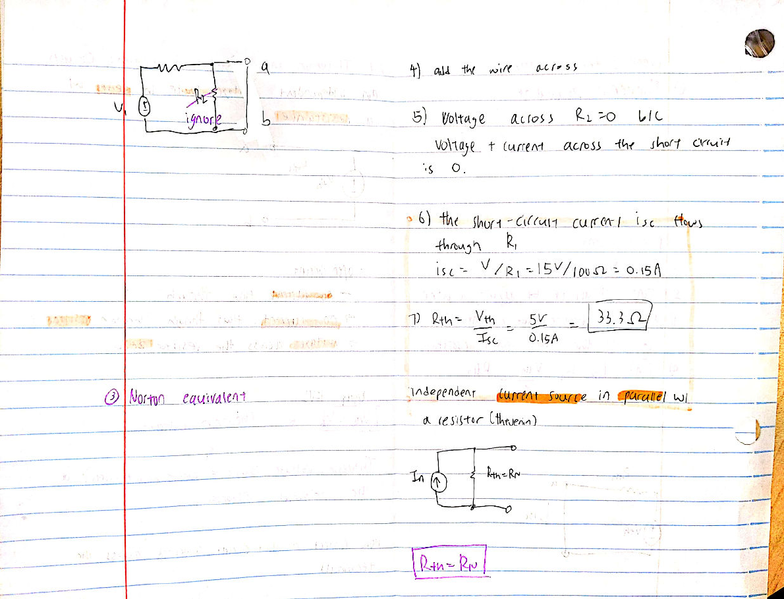 a
V₁
R₂
ignore
b
4) add the wire across
5) Voltage across R₂=0 b/c
voltage + current across the short circuit
is 0.
6) the short-circuit current isc flows
through R₁
isc = V/R₁ = 15V/100Ω = 0.15A
7) Rth = Vth/Isc = 5V/0.15A = 33.3Ω
③ Norton equivalent
independent current source in parallel w/
a resistor (thevenin)
In
Rth=RN
Rth=RN